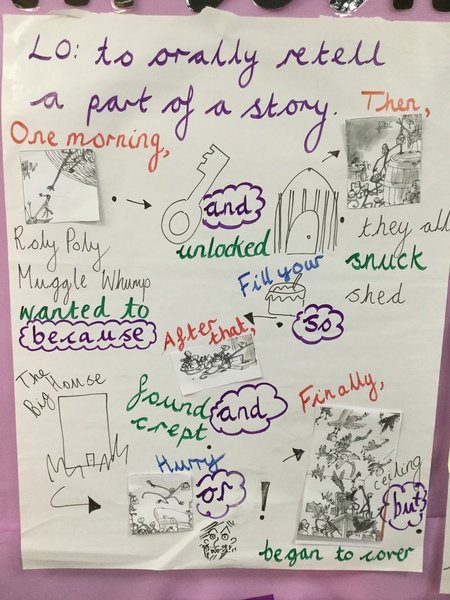 LO: to orally retell
a part of a story.
Then,
One morning,
and
unlocked
they all
snuck
shed
Roly Poly
Muggle Whump
wanted to
because
Fill your
so
After
that,
The
Big House
found
crept
and
Finally,
Hurry
or
!
ceiling
but
began to cover